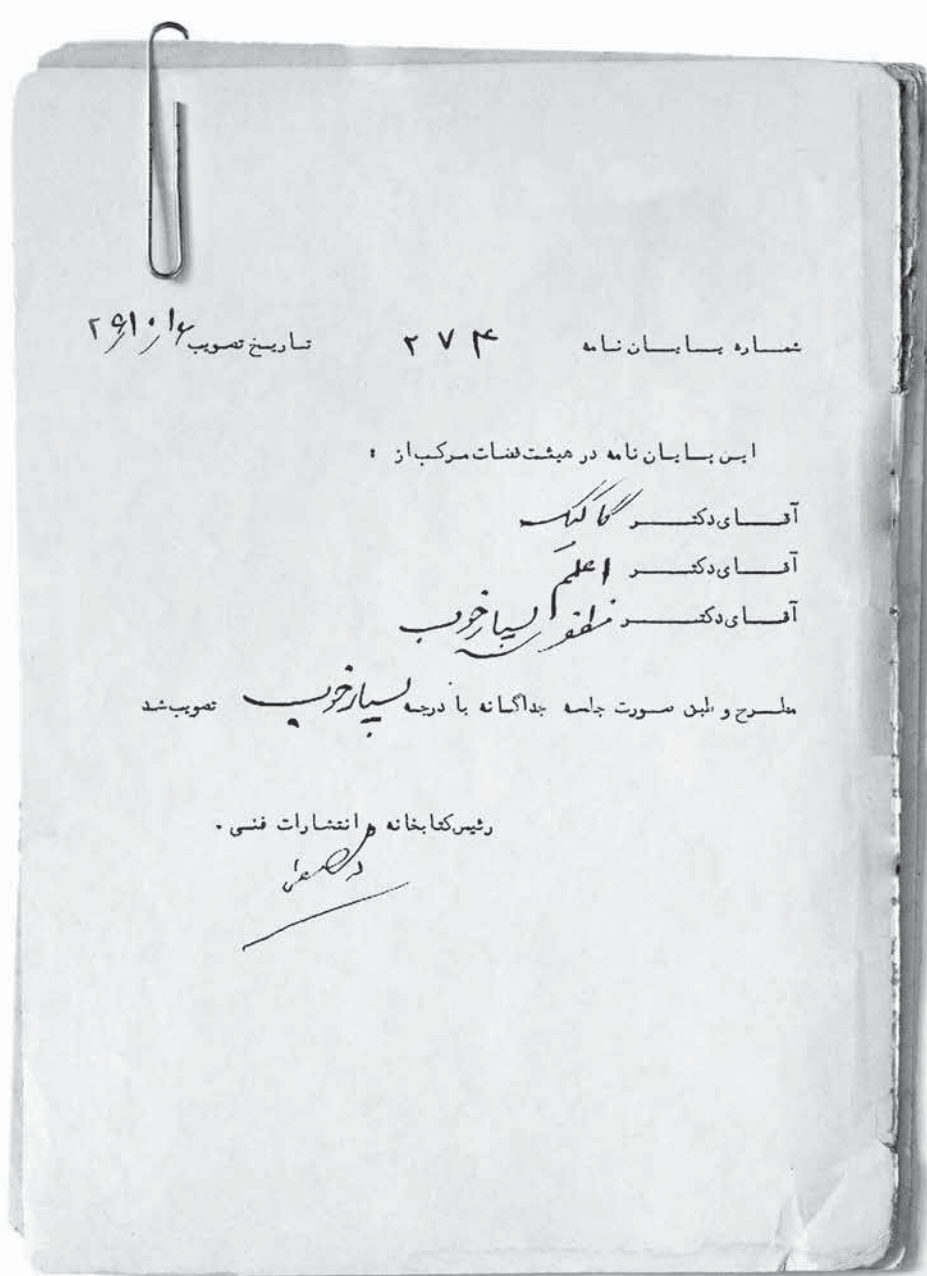 شماره پایان نامه ۲۷۴ تاریخ تصویب
این پایان نامه در هیئت قضات مرکب از :
آقای دکتر گاگیک
آقای دکتر اعلم
آقای دکتر بسیار خوب
مطرح و طبق صورت جلسه جداگانه با درجه بسیار خوب تصویب شد
رئیس کتابخانه و انتشارات فنی .